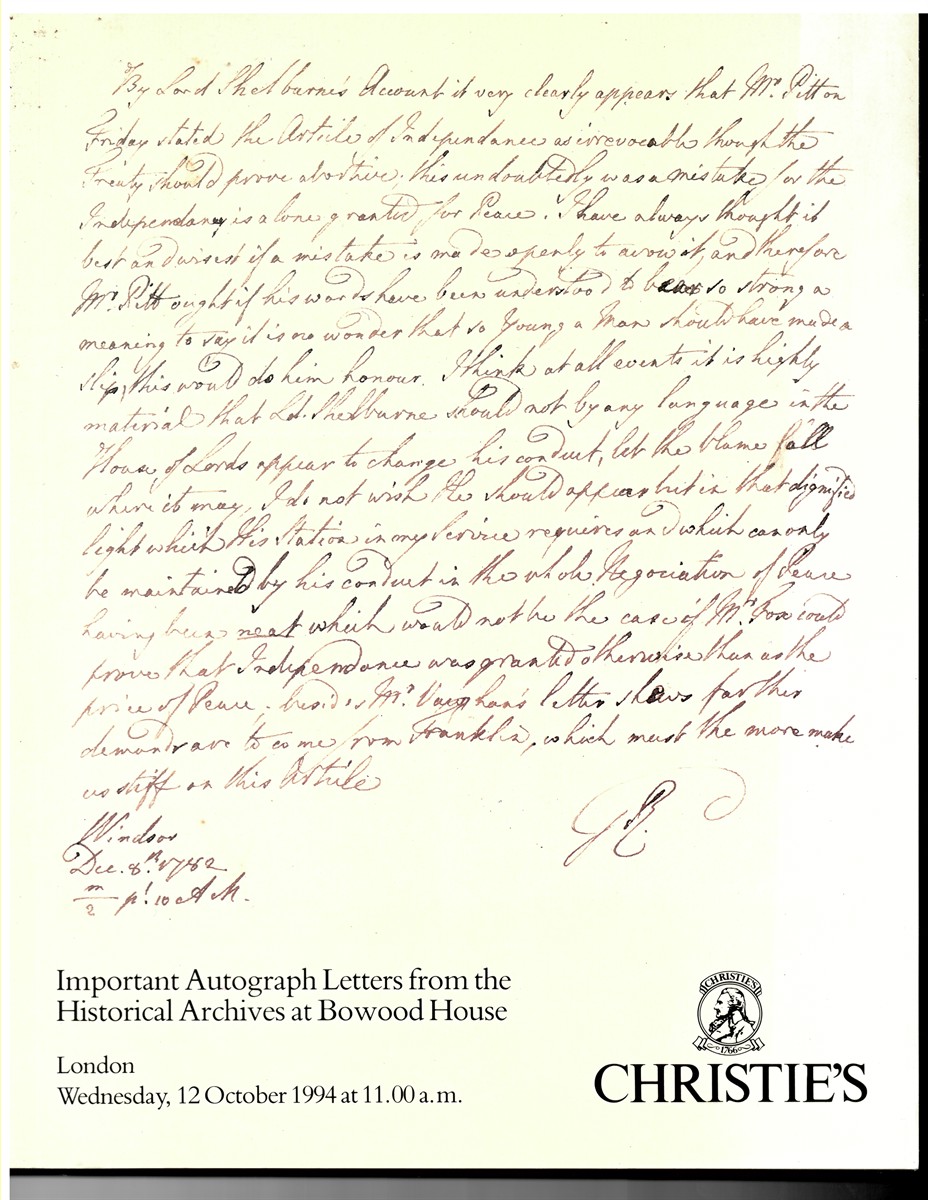 By Lord Shelburne's Account it very clearly appears that Mr. Pitt on
Friday stated the Article of Independance as irrevocable though the
Treaty should prove abortive; this undoubtedly was a mistake for the
Independancy is alone granted for Peace. I have always thought it
best and wisest if a mistake is made openly to avow it, and therefore
Mr. Pitt ought if his words have been understood to bear so strong a
meaning to say it is no wonder that so Young a Man should have made a
slip, this would do him honour. I think at all events it is highly
material that Ld. Shelburne should not by any language in the
House of Lords appear to change his conduct, let the blame fall
where it may, I do not wish He should appear but in that dignified
light which His Station in my Service requires and which can only
be maintained by his conduct in the whole Negociation of Peace
having been neat which would not be the case if Mr. Fox could
prove that Independance was granted otherwise than as the
price of Peace; besides Mr. Vaughan's letter shews farther
demands are to come from Franklin, which must the more make
us stiff on this Article
GR.
Windsor
Dec. 8th. 1782
m/2 pt. 10 AM.
Important Autograph Letters from the
Historical Archives at Bowood House
London
Wednesday, 12 October 1994 at 11.00 a.m.
CHRISTIE'S
1766
CHRISTIE'S